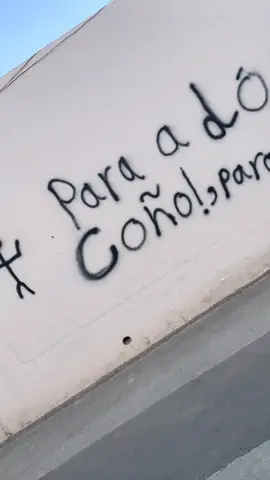 Para a dó
Coño!, para